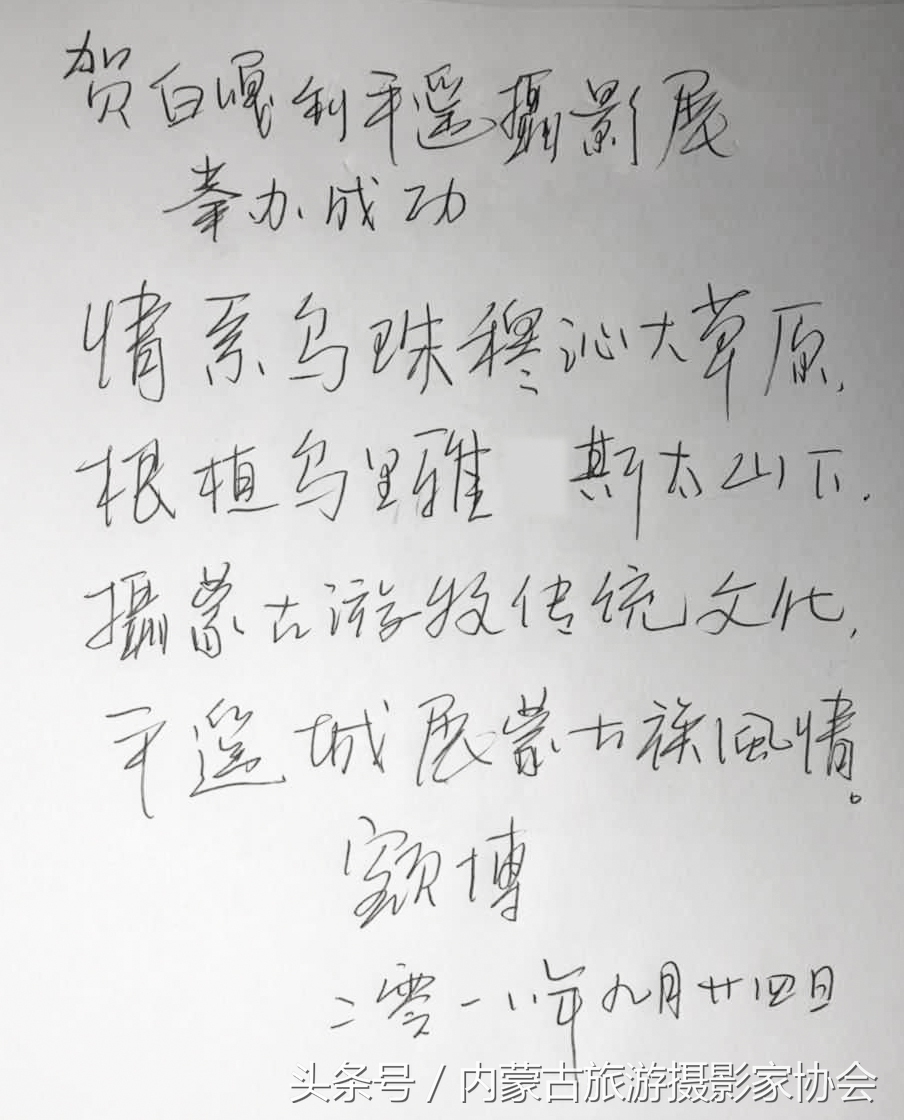 贺白嘎利平遥攝影展
举办成功
情系乌珠穆沁大草原,
根植乌里雅 斯太山下.
攝蒙古游牧传统文化,
平遥城展蒙古族風情。
额博
二零一八年九月廿四日
头条号 / 内蒙古旅游摄影家协会